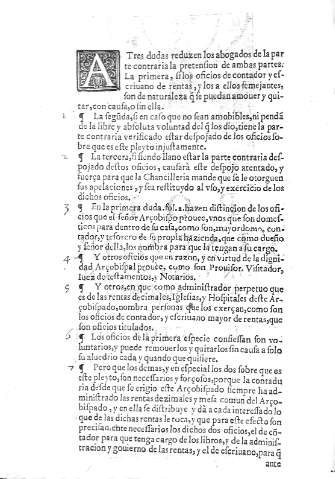 A Tres dudas reduzen los abogados de la par
te contraria la pretension de ambas partes.
La primera, si los oficios de contador y es-
criuano de rentas, y los a ellos semejantes,
son de naturaleza q̃ se puedan amouer y qui-
tar, con causa, o sin ella.
1 ¶ La segũda, si en caso que no sean amobibles, ni pendã
de la libre y absoluta voluntad del q̃ los dio, tiene la par-
te contraria verificado estar despojado de los oficios so-
bre que es este pleyto injustamente.
2 ¶ La tercera, si siendo llano estar la parte contraria des-
pojado destos oficios, causarà este despojo atentado, y
fuerça para que la Chancilleria mande que se le otorguen
sus apelaciones, y sea restituydo al vso, y exercicio de los
dichos oficios.
3 ¶ En la primera duda, fol. 1. hazen distincion de los ofi-
cios que el señor Arçobispo prouee, vnos que son domes-
ticos para dentro de su casa, como son, mayordomo, con-
tador, y tesorero de su propia hazienda, que como dueño
y señor della, los nombra para que la tengan a su cargo.
4 ¶ Y otros oficios que en razon, y en virtud de la digni-
dad Arçobispal prouee, como son Prouisor, Visitador,
Iuez de testamentos, y Notarios.
5 ¶ Y otros, en que como administrador perpetuo que
es de las rentas dezimales, Iglesias, y Hospitales deste Ar-
çobispado, nombra personas que los exerçan, como son
los oficios de contador, y escriuano mayor de rentas, que
son oficios titulados.
6 ¶ Los oficios de la primera especie confiessan son vo-
luntarios, y puede remouerlos y quitarlos sin causa a solo
su aluedrio cada y quando que quisiere.
7 ¶ Pero que los demas, y en especial los dos sobre que es
este pleyto, son necessarios y forçosos, porque la contadu
ria desde que se erigio este Arçobispado siempre ha ad-
ministrado las rentas dezimales y mesa comun del Arço-
bispado, y en ella se distribuye y dà a cada interessado lo
que de las dichas rentas le toca, y que para este efecto son
precisamẽte necessarios los dichos dos oficios, el de cõ-
tador para que tenga cargo de los libros, y de la adminis-
tracion y gouierno de las rentas, y el de escriuano, para q̃
ante